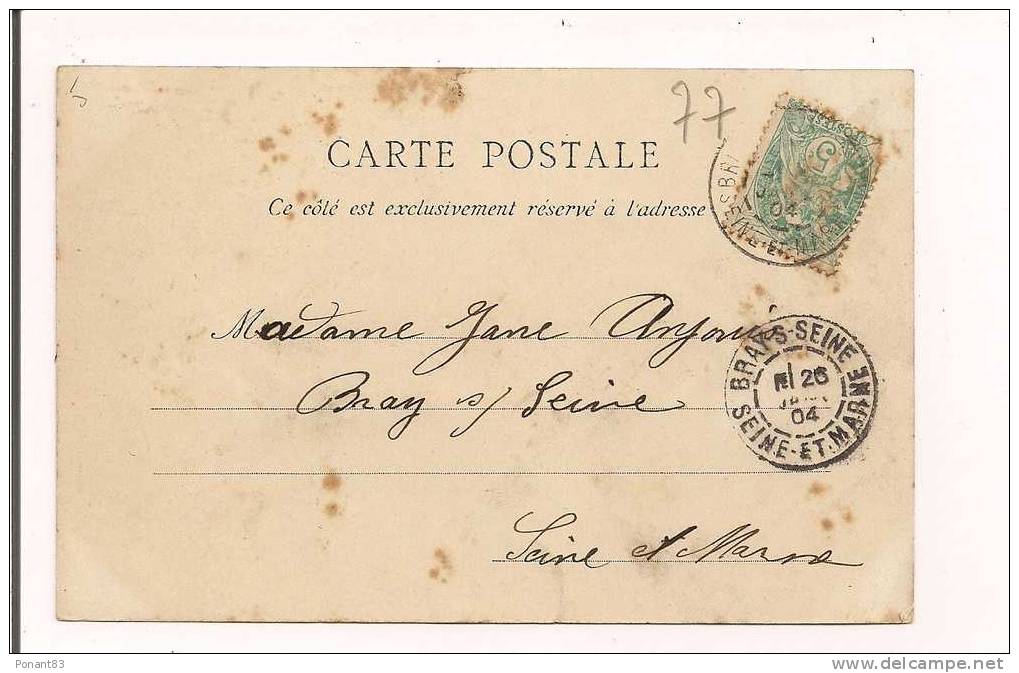 77
CARTE POSTALE
Ce côté est exclusivement réservé à l'adresse
5
SEINE-ET-MARNE
04
Madame Jane Anjou
BRAY-S-SEINE
26
04
SEINE-ET-MARNE
Bray s/ Seine
Seine et Marne
Ponant83
www.delcampe.net